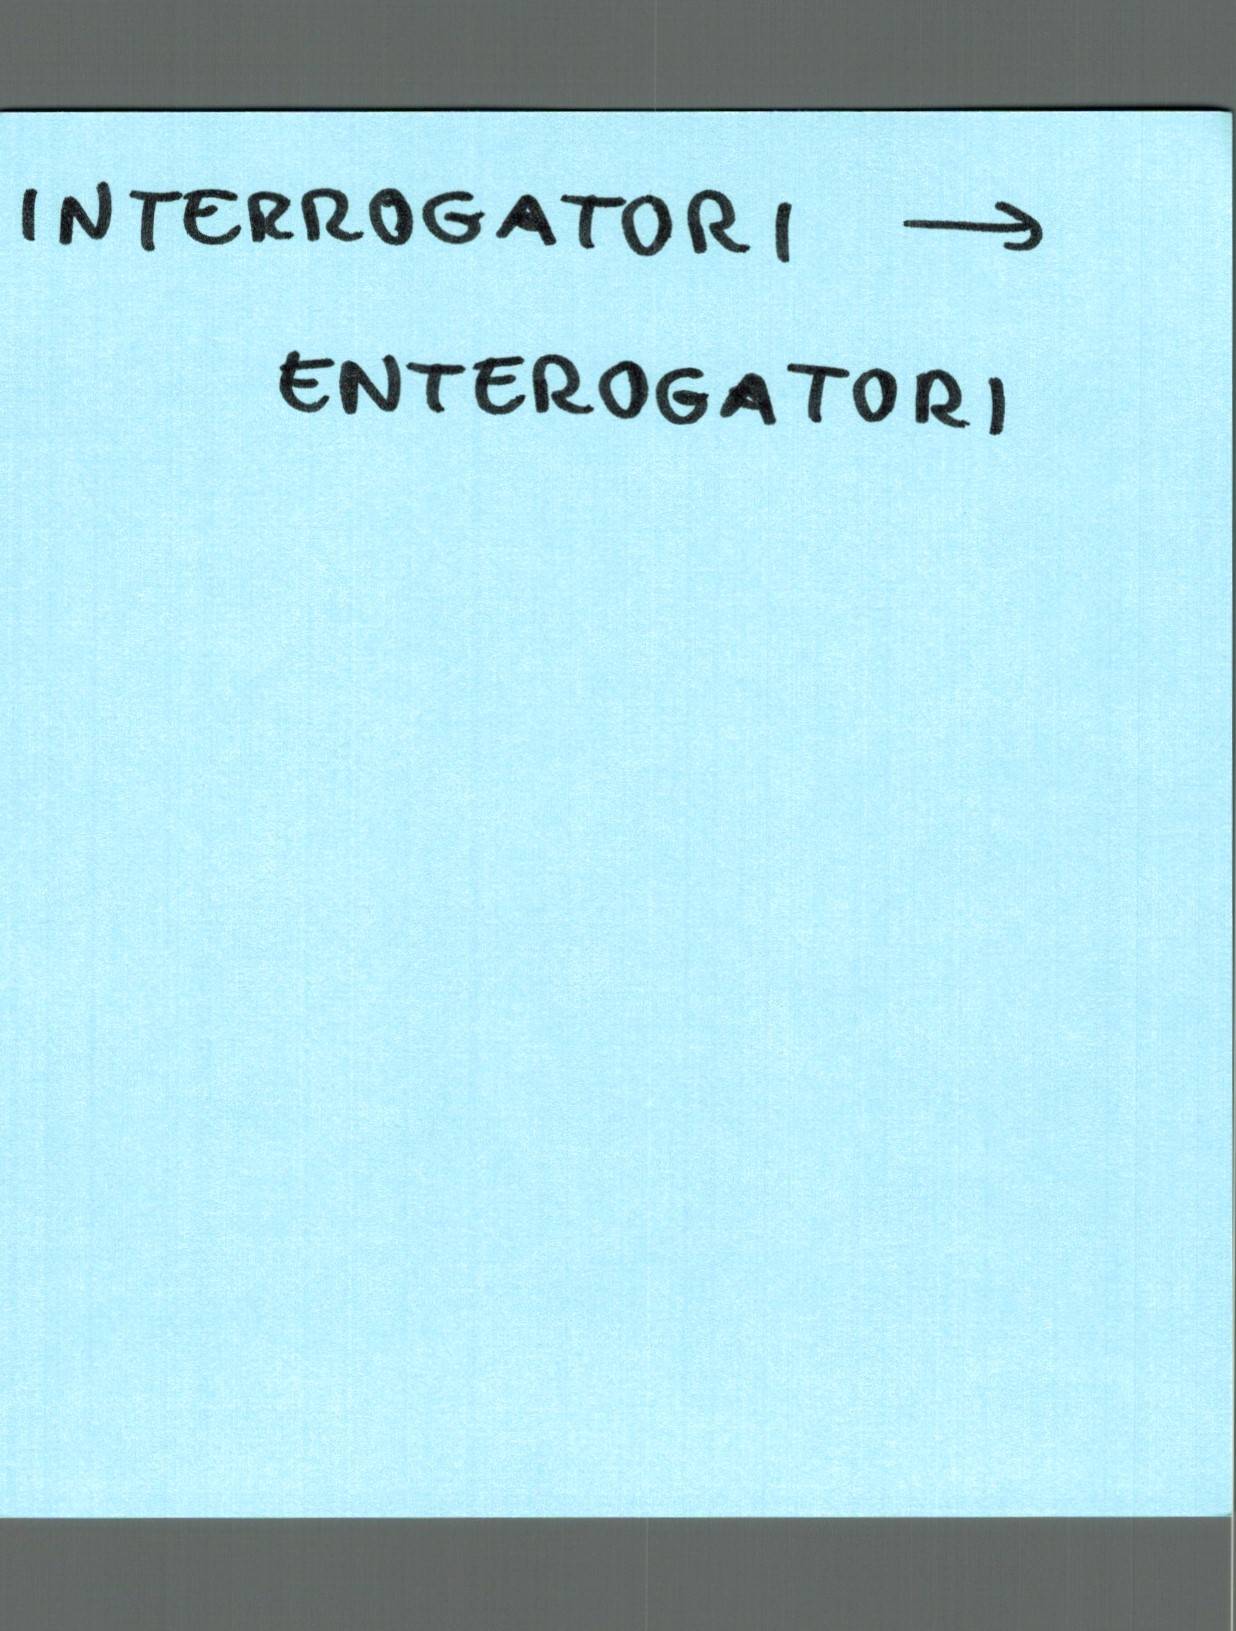 INTERROGATORI →
ENTEROGATORI